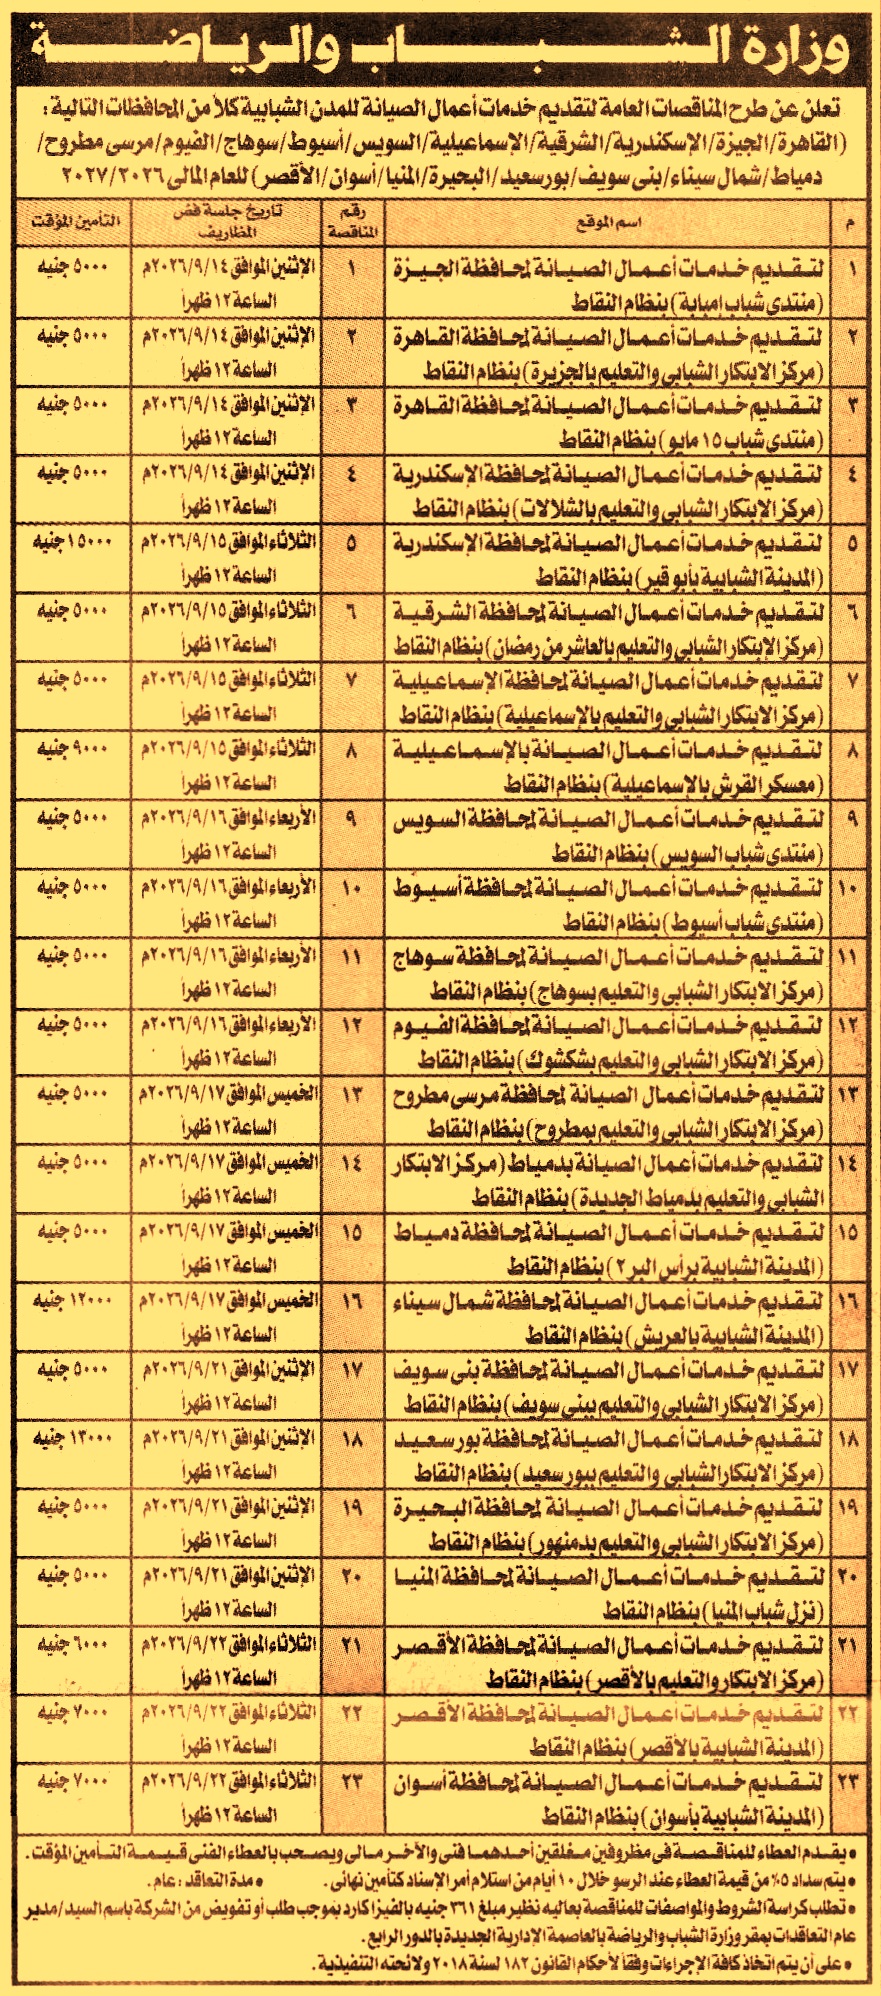 وزارة الشباب والرياضة
تعلن عن طرح المناقصات العامة لتقديم خدمات أعمال الصيانة للمدن الشبابية كلاً من المحافظات التالية :
(القاهرة/الجيزة/الإسكندرية/الشرقية/الإسماعيلية/السويس/أسيوط/سوهاج/الفيوم/مرسى مطروح/
دمياط/شمال سيناء/بنى سويف/بورسعيد/البحيرة/المنيا/أسوان/الأقصر) للعام المالى ٢٠٢٧/٢٠٢٦
م اسم الموقع رقم المناقصة تاريخ جلسة فض المظاريف التأمين المؤقت
١ لتقديم خدمات أعمال الصيانة لمحافظة الجيزة ١ الإثنين الموافق ٢٠٢٦/٩/١٤م ٥٠٠٠ جنيه
(منتدى شباب إمبابة) بنظام النقاط الساعة ١٢ ظهراً
٢ لتقديم خدمات أعمال الصيانة لمحافظة القاهرة ٢ الإثنين الموافق ٢٠٢٦/٩/١٤م ٥٠٠٠ جنيه
(مركز الابتكار الشبابى والتعليم بالجزيرة) بنظام النقاط الساعة ١٢ ظهراً
٣ لتقديم خدمات أعمال الصيانة لمحافظة القاهرة ٣ الإثنين الموافق ٢٠٢٦/٩/١٤م ٥٠٠٠ جنيه
(منتدى شباب ١٥ مايو) بنظام النقاط الساعة ١٢ ظهراً
٤ لتقديم خدمات أعمال الصيانة لمحافظة الإسكندرية ٤ الإثنين الموافق ٢٠٢٦/٩/١٤م ٥٠٠٠ جنيه
(مركز الإبتكار الشبابى والتعليم بالشلالات) بنظام النقاط الساعة ١٢ ظهراً
٥ لتقديم خدمات أعمال الصيانة لمحافظة الإسكندرية ٥ الثلاثاء الموافق ٢٠٢٦/٩/١٥م ١٥٠٠٠ جنيه
(المدينة الشبابية بأبو قير) بنظام النقاط الساعة ١٢ ظهراً
٦ لتقديم خدمات أعمال الصيانة لمحافظة الشرقية ٦ الثلاثاء الموافق ٢٠٢٦/٩/١٥م ٥٠٠٠ جنيه
(مركز الإبتكار الشبابى والتعليم بالعاشر من رمضان) بنظام النقاط الساعة ١٢ ظهراً
٧ لتقديم خدمات أعمال الصيانة لمحافظة الإسماعيلية ٧ الثلاثاء الموافق ٢٠٢٦/٩/١٥م ٥٠٠٠ جنيه
(مركز الابتكار الشبابى والتعليم بالإسماعيلية) بنظام النقاط الساعة ١٢ ظهراً
٨ لتقديم خدمات أعمال الصيانة بالإسماعيلية ٨ الثلاثاء الموافق ٢٠٢٦/٩/١٥م ٩٠٠٠ جنيه
(معسكر القرش بالإسماعيلية) بنظام النقاط الساعة ١٢ ظهراً
٩ لتقديم خدمات أعمال الصيانة لمحافظة السويس ٩ الأربعاء الموافق ٢٠٢٦/٩/١٦م ٥٠٠٠ جنيه
(منتدى شباب السويس) بنظام النقاط الساعة ١٢ ظهراً
١٠ لتقديم خدمات أعمال الصيانة لمحافظة أسيوط ١٠ الأربعاء الموافق ٢٠٢٦/٩/١٦م ٥٠٠٠ جنيه
(منتدى شباب أسيوط) بنظام النقاط الساعة ١٢ ظهراً
١١ لتقديم خدمات أعمال الصيانة لمحافظة سوهاج ١١ الأربعاء الموافق ٢٠٢٦/٩/١٦م ٥٠٠٠ جنيه
(مركز الابتكار الشبابى والتعليم بسوهاج) بنظام النقاط الساعة ١٢ ظهراً
١٢ لتقديم خدمات أعمال الصيانة لمحافظة الفيوم ١٢ الأربعاء الموافق ٢٠٢٦/٩/١٦م ٥٠٠٠ جنيه
(مركز الابتكار الشبابى والتعليم بشكشوك) بنظام النقاط الساعة ١٢ ظهراً
١٣ لتقديم خدمات أعمال الصيانة لمحافظة مرسى مطروح ١٣ الخميس الموافق ٢٠٢٦/٩/١٧م ٥٠٠٠ جنيه
(مركز الابتكار الشبابى والتعليم بمطروح) بنظام النقاط الساعة ١٢ ظهراً
١٤ لتقديم خدمات أعمال الصيانة بدمياط (مركز الابتكار ١٤ الخميس الموافق ٢٠٢٦/٩/١٧م ٥٠٠٠ جنيه
الشبابى والتعليم بدمياط الجديدة) بنظام النقاط الساعة ١٢ ظهراً
١٥ لتقديم خدمات أعمال الصيانة لمحافظة دمياط ١٥ الخميس الموافق ٢٠٢٦/٩/١٧م ٥٠٠٠ جنيه
(المدينة الشبابية برأس البر٢) بنظام النقاط الساعة ١٢ ظهراً
١٦ لتقديم خدمات أعمال الصيانة لمحافظة شمال سيناء ١٦ الخميس الموافق ٢٠٢٦/٩/١٧م ١٢٠٠٠ جنيه
(المدينة الشبابية بالعريش) بنظام النقاط الساعة ١٢ ظهراً
١٧ لتقديم خدمات أعمال الصيانة لمحافظة بنى سويف ١٧ الإثنين الموافق ٢٠٢٦/٩/٢١م ٥٠٠٠ جنيه
(مركز الابتكار الشبابى والتعليم ببنى سويف) بنظام النقاط الساعة ١٢ ظهراً
١٨ لتقديم خدمات أعمال الصيانة لمحافظة بورسعيد ١٨ الإثنين الموافق ٢٠٢٦/٩/٢١م ١٣٠٠٠ جنيه
(مركز الابتكار الشبابى والتعليم ببورسعيد) بنظام النقاط الساعة ١٢ ظهراً
١٩ لتقديم خدمات أعمال الصيانة لمحافظة البحيرة ١٩ الإثنين الموافق ٢٠٢٦/٩/٢١م ٥٠٠٠ جنيه
(مركز الابتكار الشبابى والتعليم بدمنهور) بنظام النقاط الساعة ١٢ ظهراً
٢٠ لتقديم خدمات أعمال الصيانة لمحافظة المنيا ٢٠ الإثنين الموافق ٢٠٢٦/٩/٢١م ٥٠٠٠ جنيه
(نزل شباب المنيا) بنظام النقاط الساعة ١٢ ظهراً
٢١ لتقديم خدمات أعمال الصيانة لمحافظة الأقصر ٢١ الثلاثاء الموافق ٢٠٢٦/٩/٢٢م ٦٠٠٠ جنيه
(مركز الابتكار والتعليم بالأقصر) بنظام النقاط الساعة ١٢ ظهراً
٢٢ لتقديم خدمات أعمال الصيانة لمحافظة الأقصر ٢٢ الثلاثاء الموافق ٢٠٢٦/٩/٢٢م ٧٠٠٠ جنيه
(المدينة الشبابية بالأقصر) بنظام النقاط الساعة ١٢ ظهراً
٢٣ لتقديم خدمات أعمال الصيانة لمحافظة أسوان ٢٣ الثلاثاء الموافق ٢٠٢٦/٩/٢٢م ٧٠٠٠ جنيه
(المدينة الشبابية بأسوان) بنظام النقاط الساعة ١٢ ظهراً
• يقدم العطاء للمناقصة فى مظروفين مغلقين أحدهما فنى والآخر مالى ويصحب بالعطاء الفنى قيمة التأمين المؤقت .
• يتم سداد ٥٪ من قيمة العطاء عند الرسو خلال ١٠ أيام من استلام أمر الإسناد كتأمين نهائى . • مدة التعاقد : عام .
• تطلب كراسة الشروط والمواصفات للمناقصة بعاليه نظير مبلغ ٣٦١ جنيه بالفيزا كارد بموجب طلب أو تفويض من الشركة باسم السيد/مدير
عام التعاقدات بمقر وزارة الشباب والرياضة بالعاصمة الإدارية الجديدة بالدور الرابع .
• على أن يتم اتخاذ كافة الإجراءات وفقاً لأحكام القانون ١٨٢ لسنة ٢٠١٨ ولائحته التنفيذية .